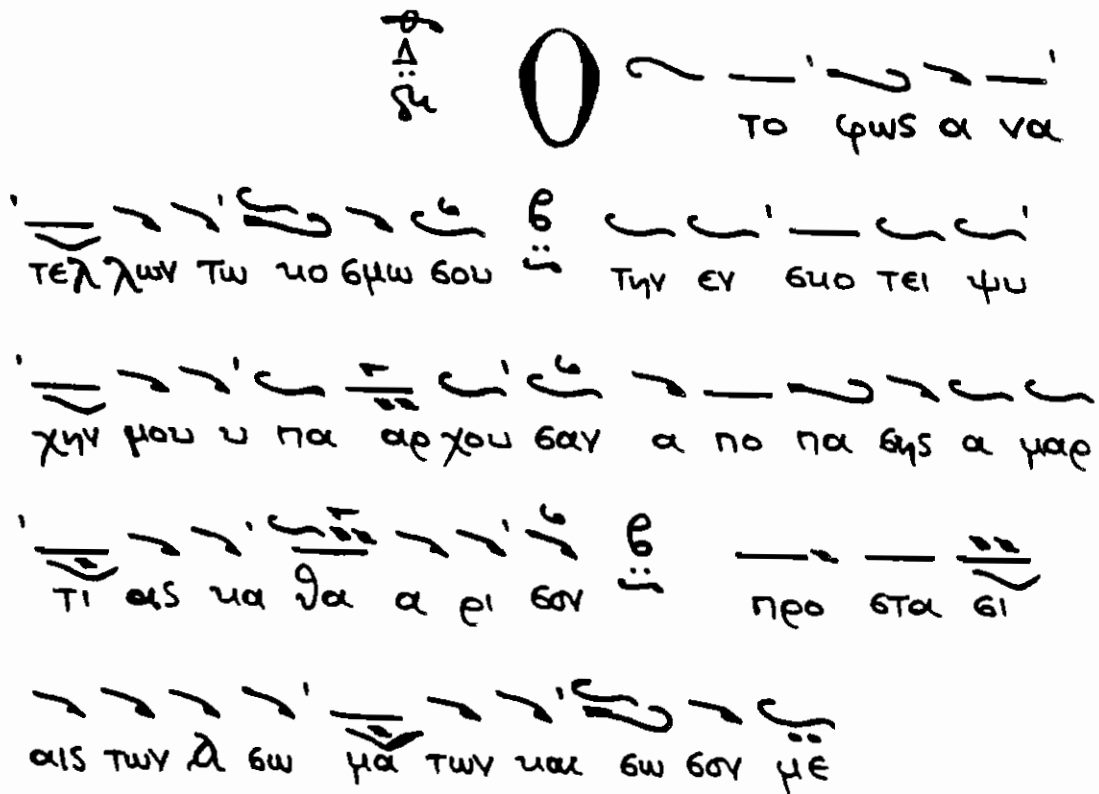 Δ
Ο το φως α να
τελ λων τω κο σμω σου την εν σκο τει ψυ
χην μου υ πα αρ χου σαν α πο πα σης α μαρ
τι αις κα θα α ρι σον προ στα σι
αις των Α σω μα των και σω σον με